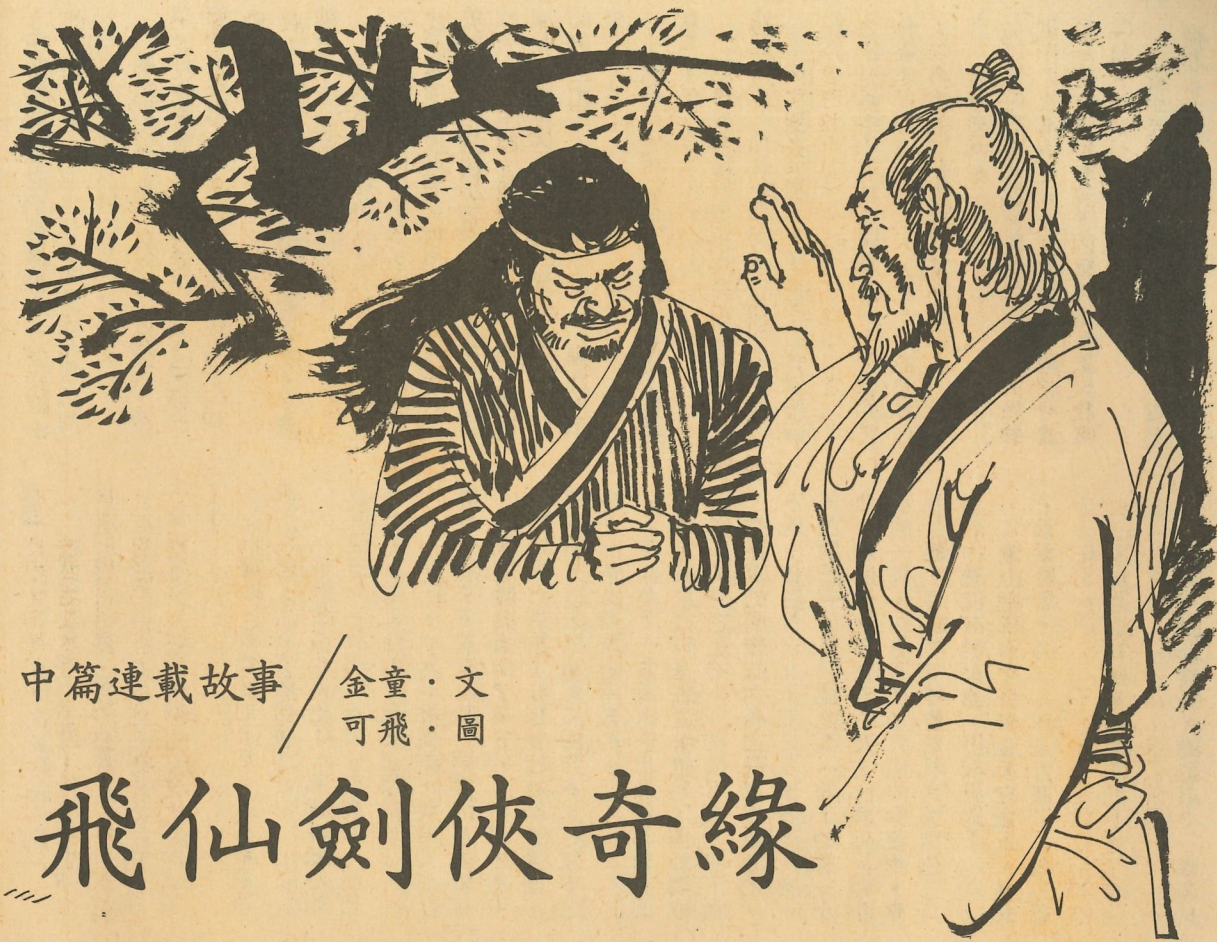 中篇連載故事／金童・文
可飛・圖
飛仙劍俠奇緣